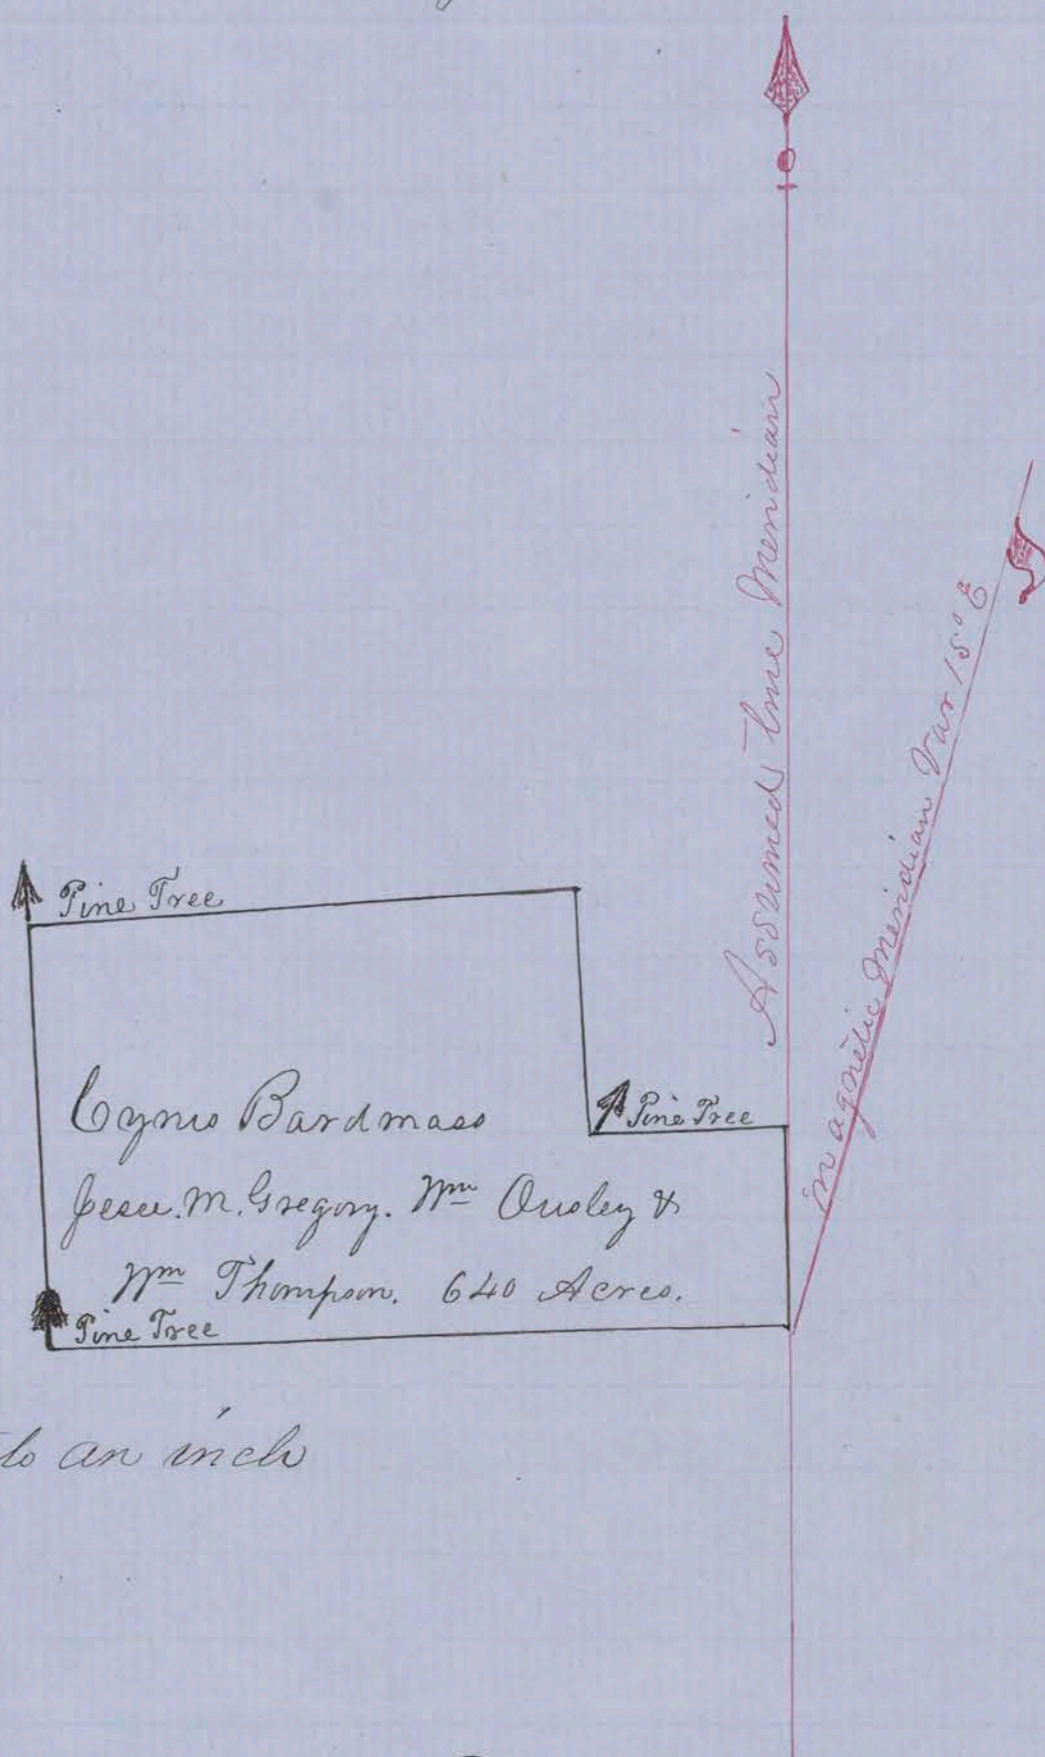 Assumed True Meridian
Magnetic Meridian Var 15° E
Pine Tree
Pine Tree
Cyrus Bardmass
Jesse. M. Gregory. Wm Ousley &
Wm Thompson. 640 Acres.
Pine Tree
to an inch